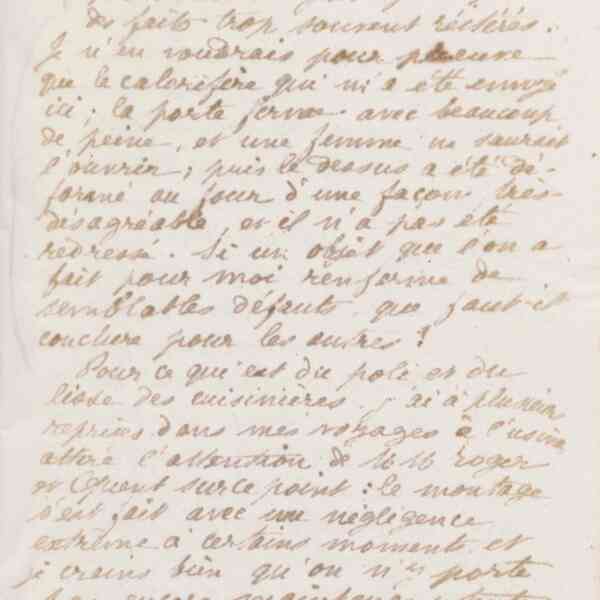 des faits trop souvent réitérés.
Je n'en voudrais pour preuve
que le calorifère qui m'a été envoyé
ici ; la porte ferme avec beaucoup
de peine, et une femme ne saurait
l'ouvrir ; puis le dessus a été dé-
formé au four d'une façon très
désagréable, et il n'a pas été
redressé. Si un objet que l'on a
fait pour moi renferme de
semblables défauts que faut-il
conclure pour les autres ?
Pour ce qui est du poli et du
lissé des cuisinières, j'ai à plusieurs
reprises dans mes voyages à l'usine
attiré l'attention de MM roger
et sur ce point : le montage
s'est fait avec une négligence
extrême à certains moments et
je crains bien qu'on n'y porte
pas encore maintenant